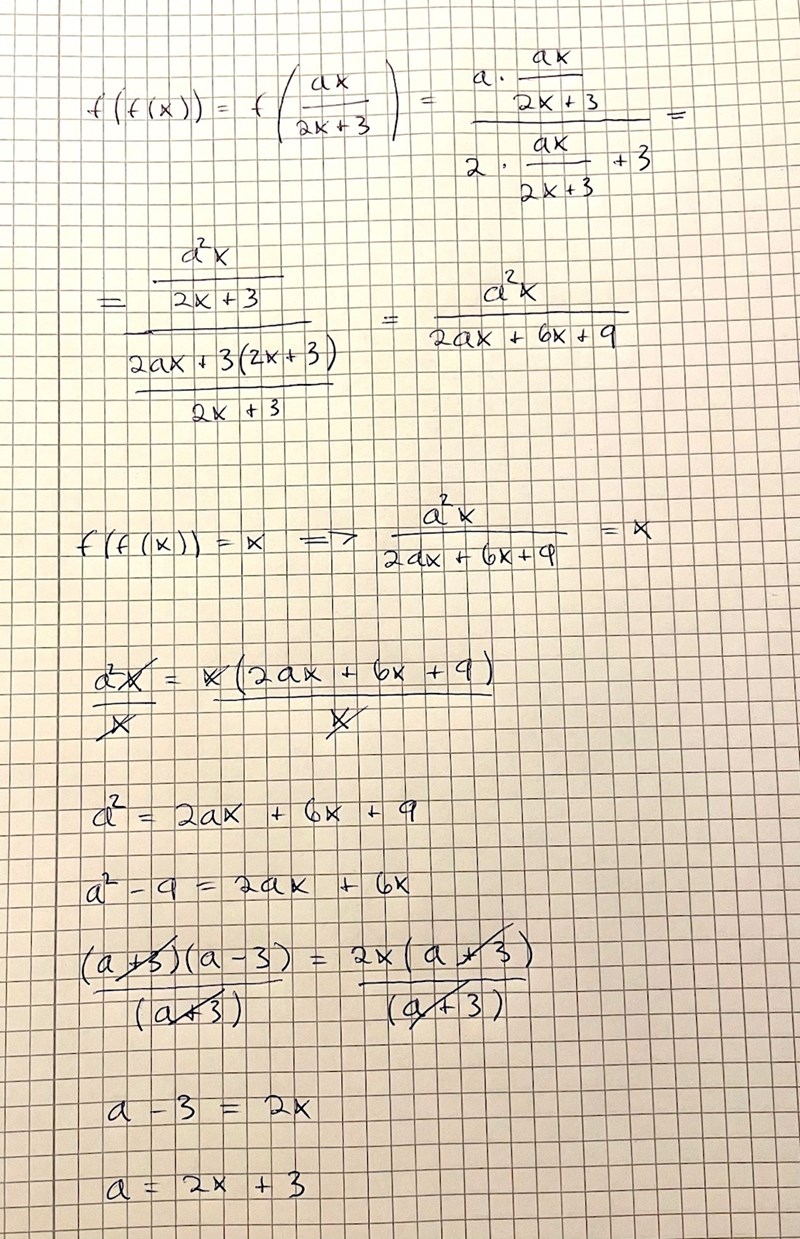 f(f(x)) = f(ax/(2x+3)) = (a · ax/(2x+3))/(2 · ax/(2x+3) + 3) =
= (a²x/(2x+3))/((2ax + 3(2x+3))/(2x+3)) = a²x/(2ax + 6x + 9)
f(f(x)) = x => a²x/(2ax + 6x + 9) = x
a²x/x = x(2ax + 6x + 9)/x
a² = 2ax + 6x + 9
a² - 9 = 2ax + 6x
(a+3)(a-3)/(a+3) = 2x(a+3)/(a+3)
a - 3 = 2x
a = 2x + 3